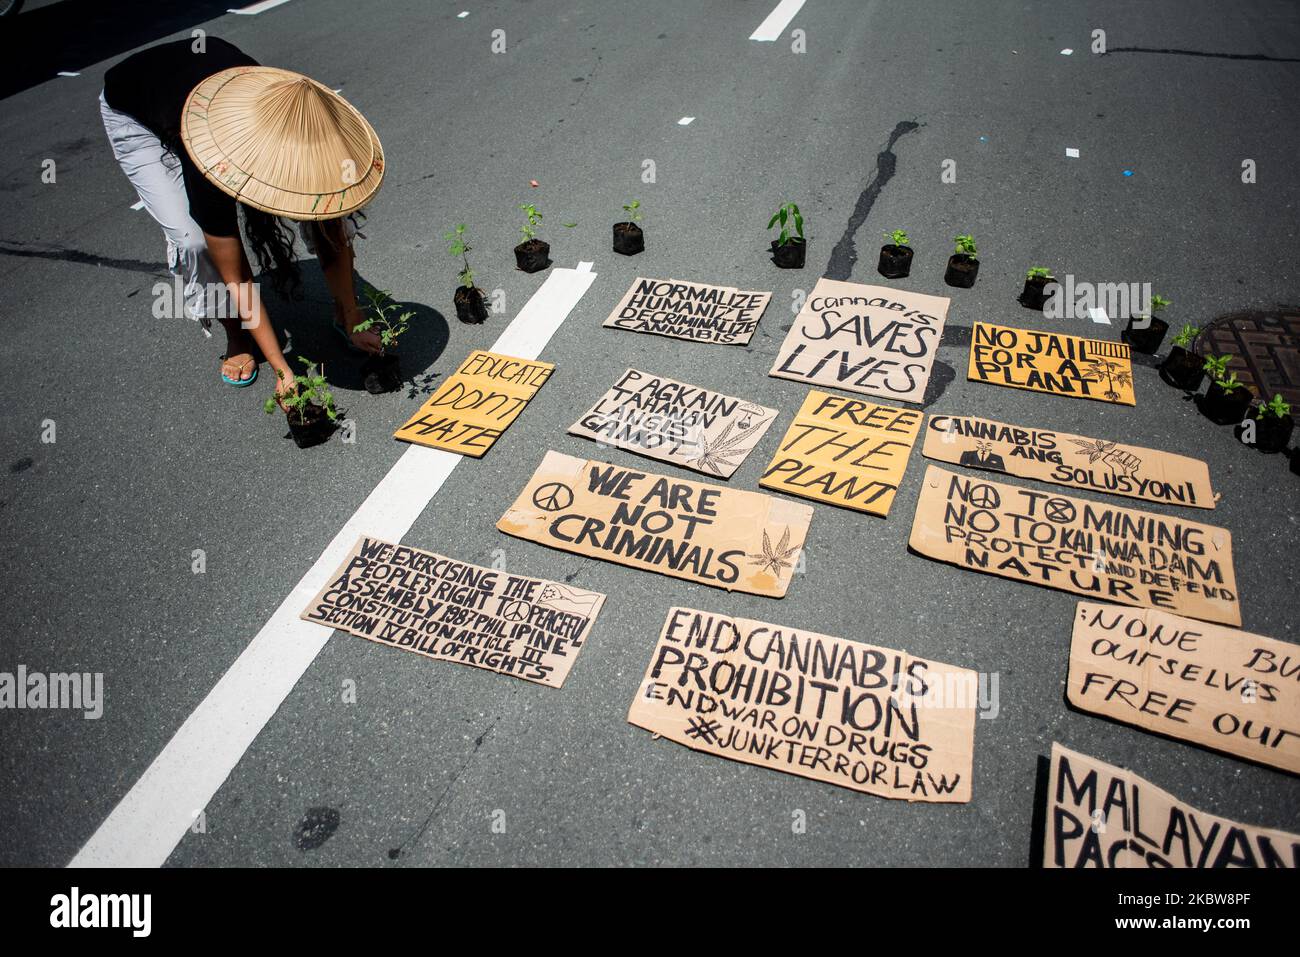 NORMALIZE
HUMANIZE
DECRIMINALIZE
CANNABIS
CANNABIS
SAVES
LIVES
NO JAIL
FOR A
PLANT
EDUCATE
DON'T
HATE
PAGKAIN
TAHANAN
LANGIS
GAMOT
FREE
THE
PLANT
CANNABIS
ANG
SOLUSYON!
WE ARE
NOT
CRIMINALS
NO TO MINING
NO TO KALIWA DAM
PROTECT AND DEFEND
NATURE
WE'EXERCISING THE
PEOPLE'S RIGHT TO PEACEFUL
ASSEMBLY 1987 PHILIPINE
CONSTITUTION ARTICLE III
SECTION IV BILL OF RIGHTS.
END CANNABIS
PROHIBITION
END WAR ON DRUGS
#JUNKTERRORLAW
:NONE BU
OURSELVES
FREE OU
MALAYAN
alamy
Image ID: 2K8W8PF
www.alamy.com